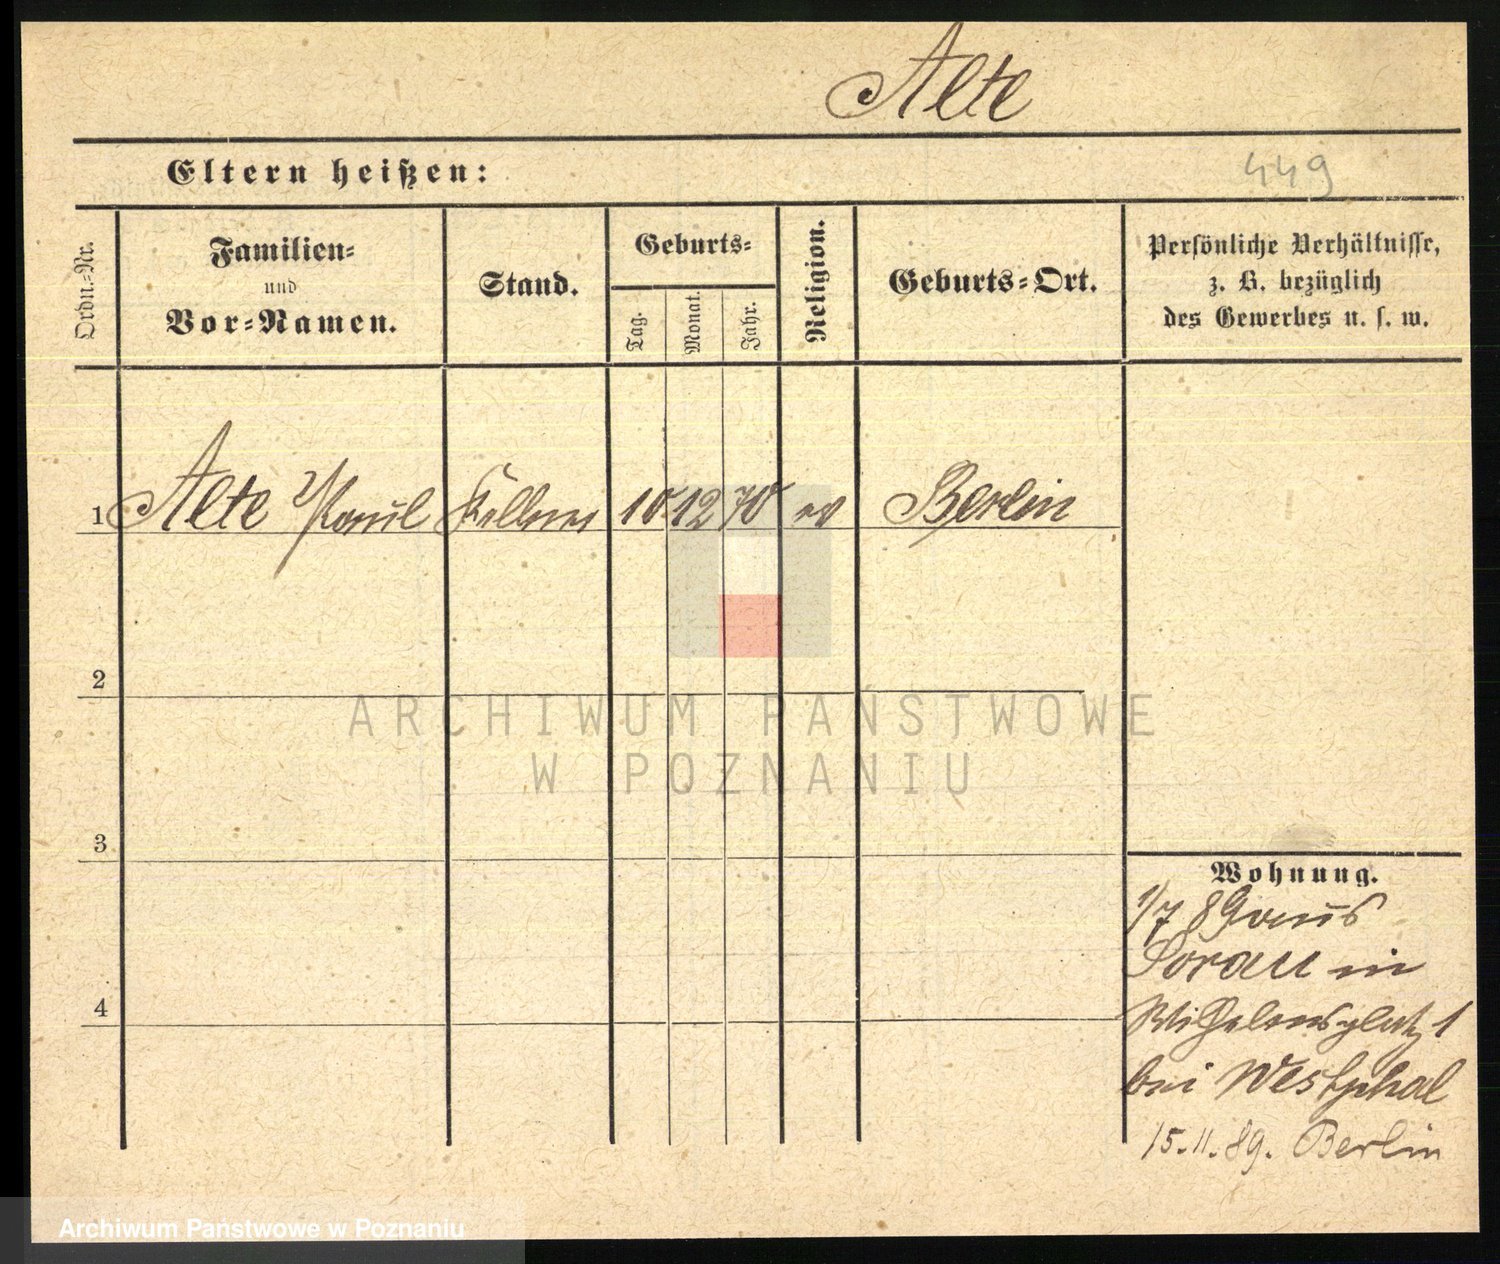 Alte
Eltern heißen:
449
Ordn.-Nr.
Familien-
und
Vor-Namen.
Stand.
Geburts-
Tag.
Monat.
Jahr.
Religion.
Geburts-Ort.
Persönliche Verhältnisse,
z. B. bezüglich
des Gewerbes u. s. w.
1 Alte Paul Kellner 10 12 70 ev Berlin
2
3
4
Wohnung.
1/7 89 aus
Sorau in
Wilhelmsplatz 1
bei Westphal
15.11.89. Berlin
ARCHIWUM PAŃSTWOWE
W POZNANIU
Archiwum Państwowe w Poznaniu